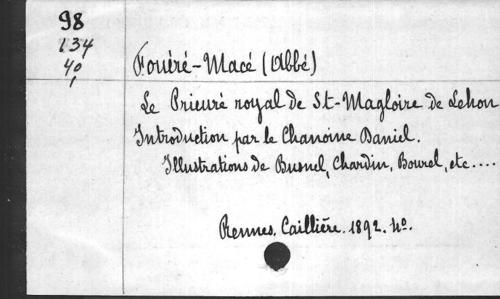 98
134
40
1
Fouéré-Macé (Abbé)
Le Prieuré royal de St-Magloire de Lehon
Introduction par le Chanoine Daniel.
Illustrations de Busnel, Chardin, Bourel, etc....
Rennes. Caillière. 1892. 4o.